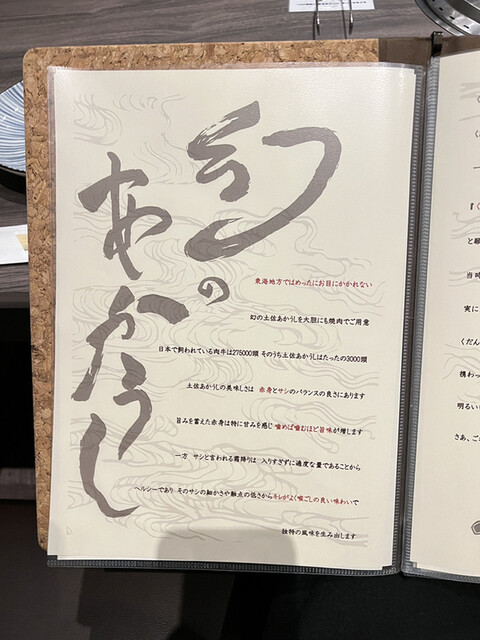 幻の
あかうし
東海地方ではめったにお目にかかれない
幻の土佐あかうしを大胆にも焼肉でご用意
日本で飼われている肉牛は275000頭 そのうち土佐あかうしはたったの3000頭
土佐あかうしの美味しさは 赤身とサシのバランスの良さにあります
旨みを蓄えた赤身は特に甘みを感じ 噛めば噛むほど旨味が増します
一方 サシと言われる霜降りは 入りすぎずに適度な量であることから
ヘルシーであり そのサシの細かさや融点の低さからキレがよく喉ごしの良い味わいで
独特の風味を生み出します
『く
と願
当時
実に
くだん
携わっ
明るい
さあ、ご